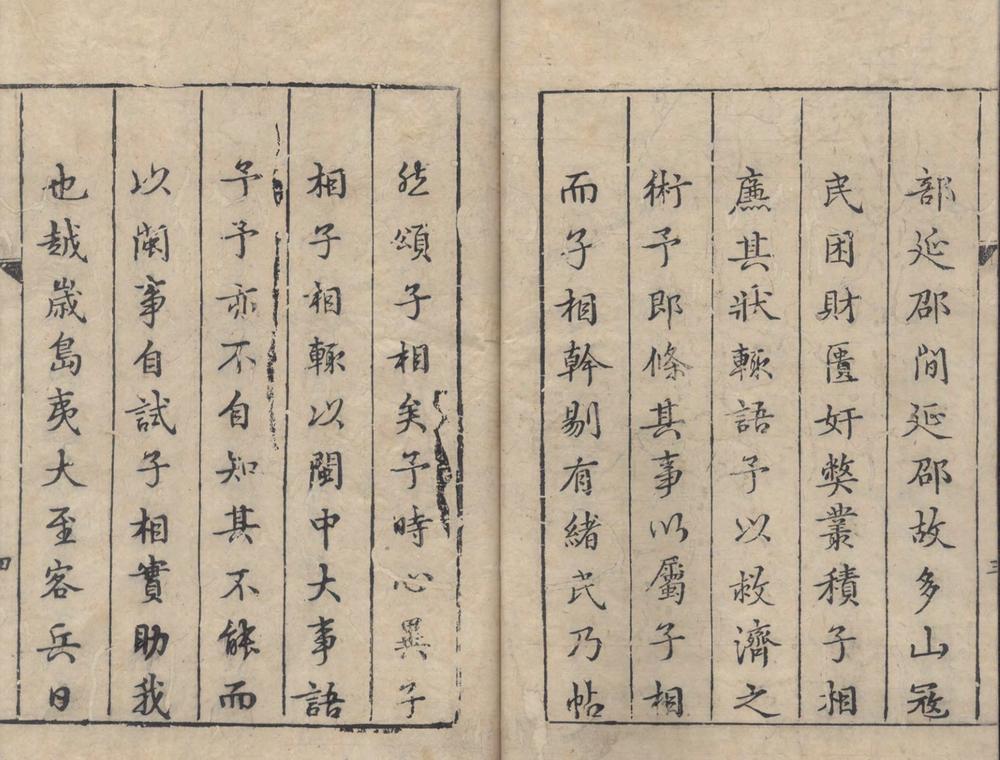 部延邵間延邵故多山冦
民困財匱奸獘叢積子相
廉其狀輒語予以救濟之
術予即條其事以屬子相
而子相幹剔有緒民乃帖
然頌子相矣予時心異子
相子相輒以閩中大事語
予予亦不自知其不能而
以閩事自試子相實助我
也越歲島夷大至客兵日
三
四